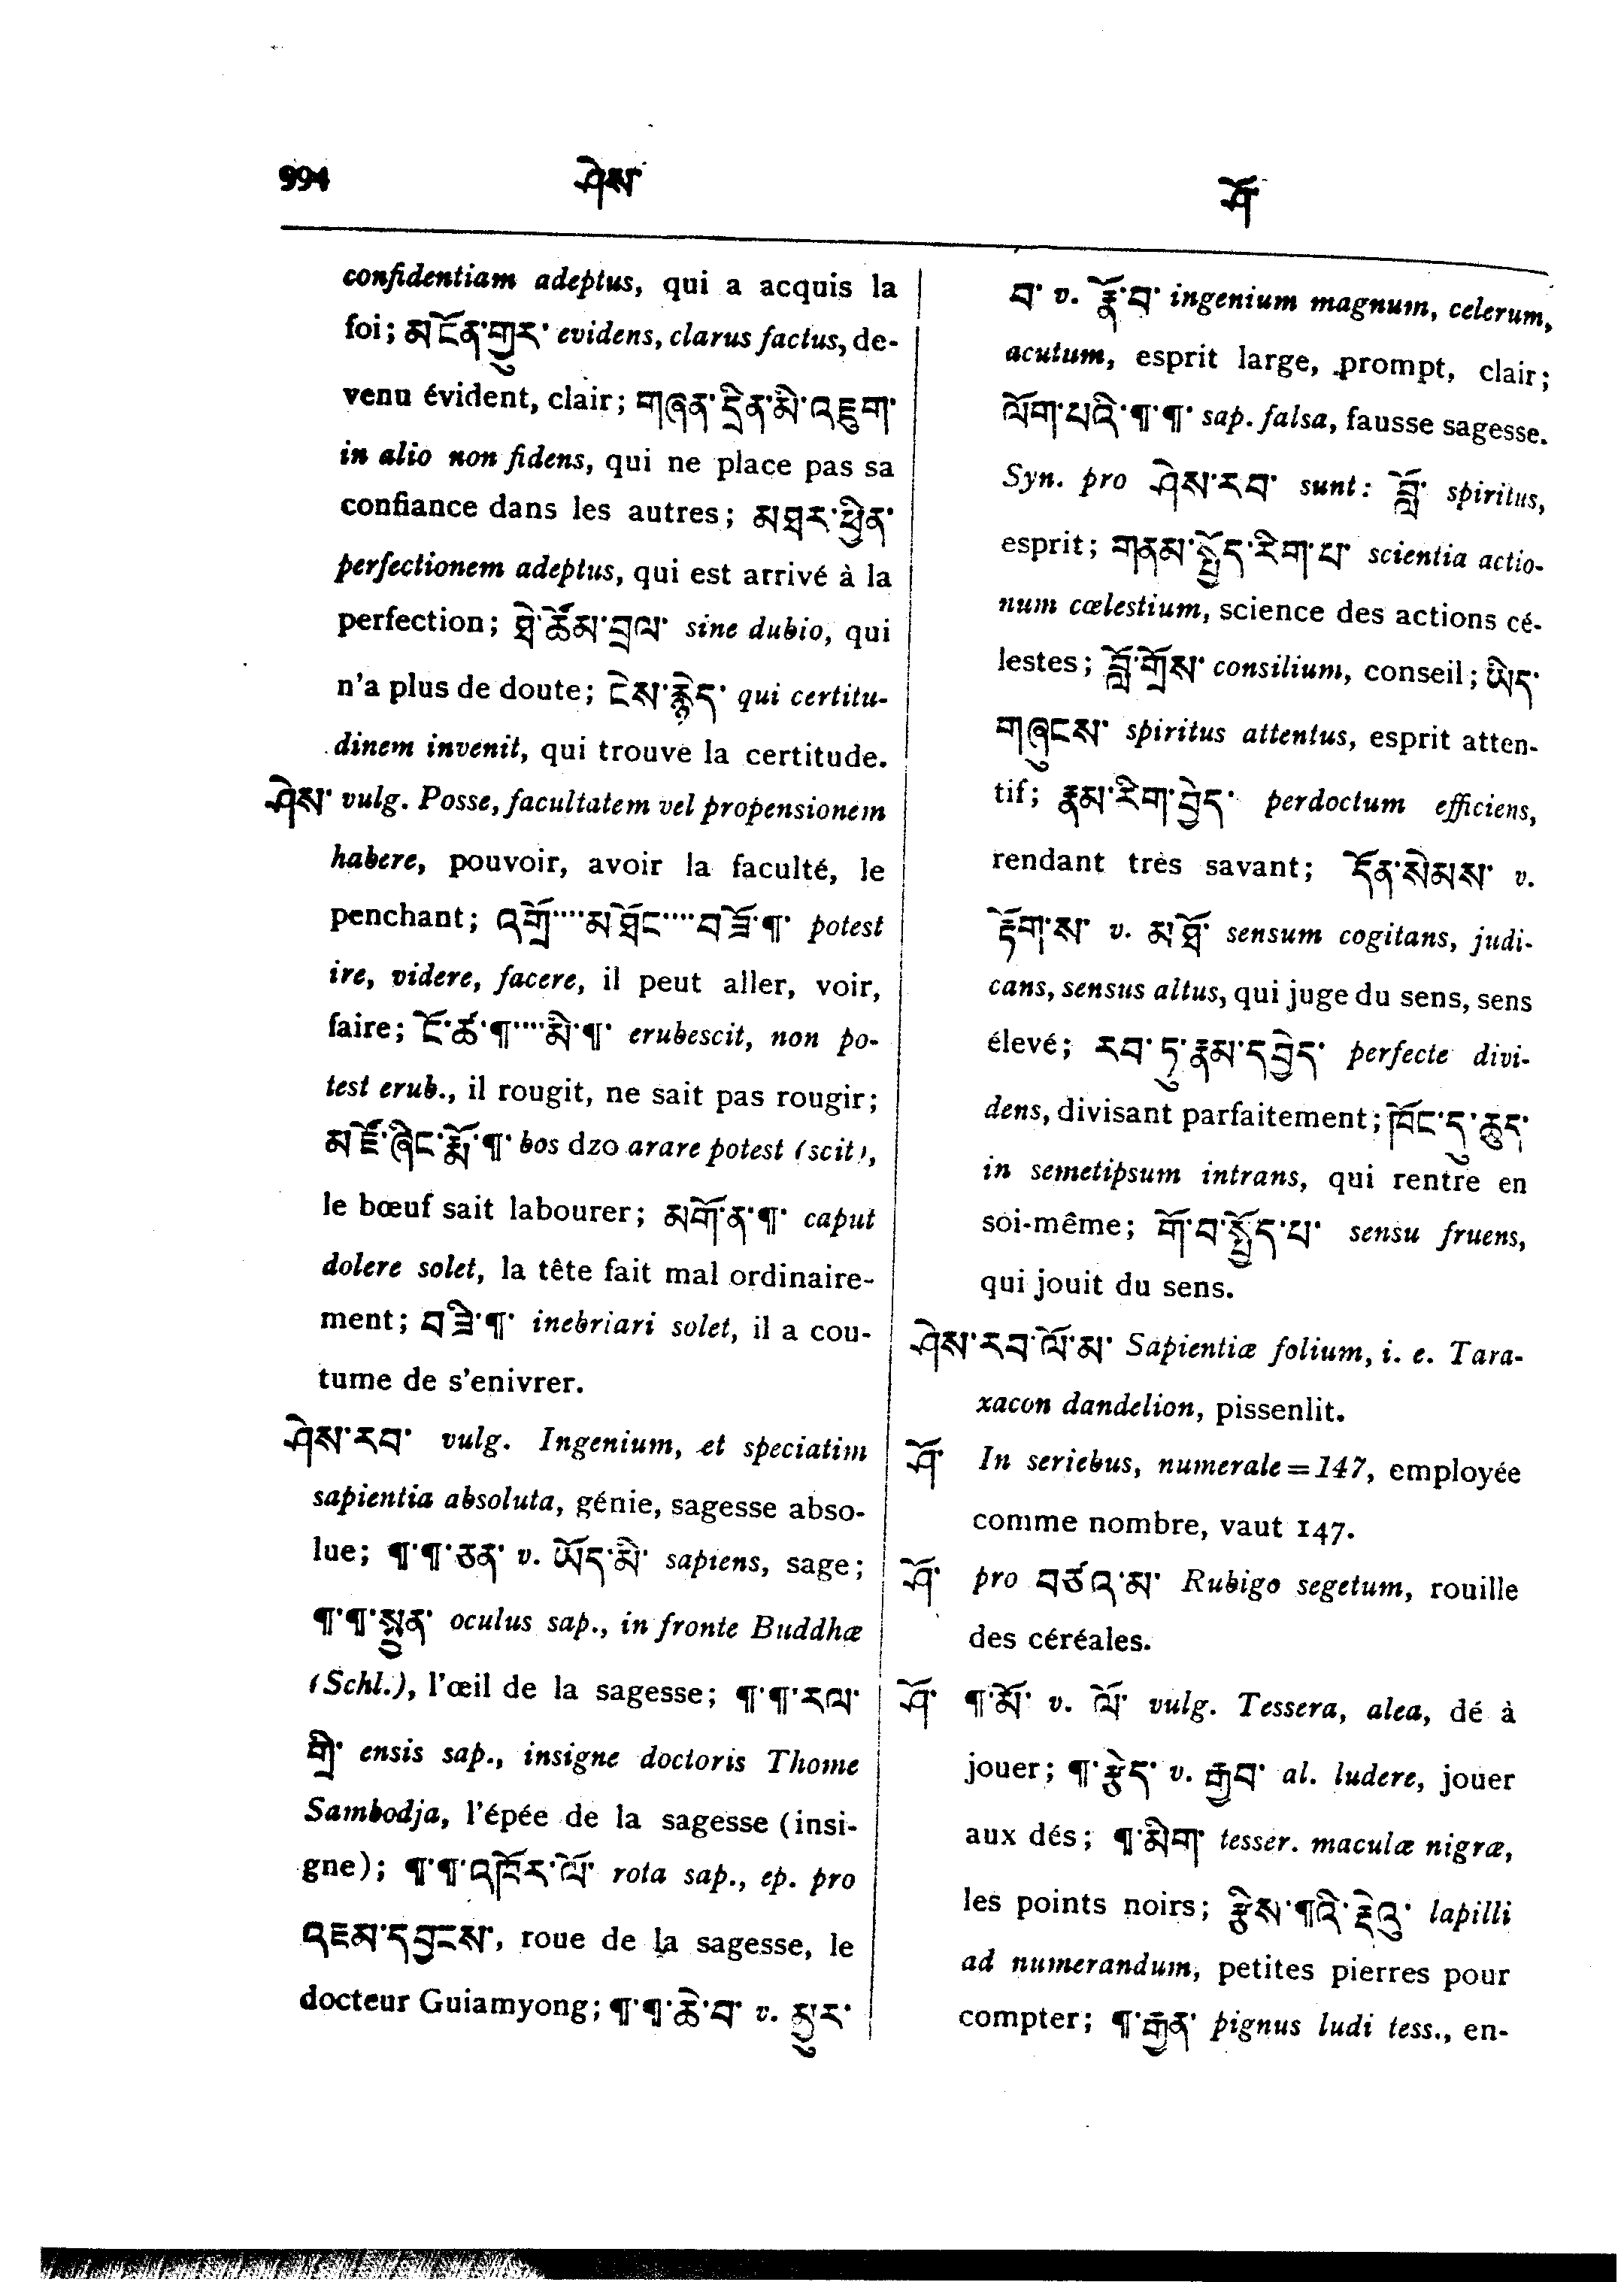 994
ཤེས་
ཤོ
confidentiam adeptus, qui a acquis la
foi; མངོན་གྱུར་ evidens, clarus factus, de-
venu évident, clair; གཞན་དྲིན་མི་འཇུག་
in alio non fidens, qui ne place pas sa
confiance dans les autres; མཐར་ཕྱིན་
perfectionem adeptus, qui est arrivé à la
perfection; ཐེ་ཚོམ་བྲལ་ sine dubio, qui
n'a plus de doute; ངེས་རྙེད་ qui certitu-
dinem invenit, qui trouve la certitude.
ཤེས་ vulg. Posse, facultatem vel propensionem
habere, pouvoir, avoir la faculté, le
penchant; འགྲོ་···མཐོང་···བཟོ་¶་ potest
ire, videre, facere, il peut aller, voir,
faire; ངོ་ཚ་¶་···མི་¶་ erubescit, non po-
test erub., il rougit, ne sait pas rougir;
མཛོ་ཞིང་རྨོ་¶་ bos dzo arare potest (scit),
le bœuf sait labourer; མགོ་ན་¶་ caput
dolere solet, la tête fait mal ordinaire-
ment; བཟི་¶་ inebriari solet, il a cou-
tume de s'enivrer.
ཤེས་རབ་ vulg. Ingenium, et speciatim
sapientia absoluta, génie, sagesse abso-
lue; ¶་¶་ཅན་ v. ཡོད་མི་ sapiens, sage;
¶་¶་སྤྱན་ oculus sap., in fronte Buddhæ
(Schl.), l'œil de la sagesse; ¶་¶་རལ་
གྲི་ ensis sap., insigne doctoris Thome
Sambodja, l'épée de la sagesse (insi-
gne); ¶་¶་འཁོར་ལོ་ rota sap., ep. pro
འཇམ་དབྱངས་, roue de la sagesse, le
docteur Guiamyong; ¶་¶་ཆེ་བ་ v. མྱུར་
བ་ v. རྣོ་བ་ ingenium magnum, celerum,
acutum, esprit large, prompt, clair;
ལོག་པའི་¶་¶་ sap. falsa, fausse sagesse.
Syn. pro ཤེས་རབ་ sunt: བློ་ spiritus,
esprit; གནམ་སྤྱོད་རིག་པ་ scientia actio-
num cœlestium, science des actions cé-
lestes; བློ་གྲོས་ consilium, conseil; ཡིད་
གཞུངས་ spiritus attentus, esprit atten-
tif; རྣམ་རིག་བྱེད་ perdoctum efficiens,
rendant très savant; དོན་སེམས་ v.
རྟོག་ས་ v. མཐོ་ sensum cogitans, judi-
cans, sensus altus, qui juge du sens, sens
élevé; རབ་ཏུ་རྣམ་དབྱེད་ perfecte divi-
dens, divisant parfaitement; ཁོང་དུ་ཆུད་
in semetipsum intrans, qui rentre en
soi-même; གོ་བ་སྤྱོད་པ་ sensu fruens,
qui jouit du sens.
ཤེས་རབ་ལོ་མ་ Sapientiæ folium, i. e. Tara-
xacon dandelion, pissenlit.
ཤོ་ In seriebus, numerale = 147, employée
comme nombre, vaut 147.
ཤོ་ pro བཙའ་མ་ Rubigo segetum, rouille
des céréales.
ཤོ་ ¶་མོ་ v. ལོ་ vulg. Tessera, alea, dé à
jouer; ¶་རྩེད་ v. རྒྱབ་ al. ludere, jouer
aux dés; ¶་མིག་ tesser. maculæ nigræ,
les points noirs; རྩིས་¶འི་རྡེའུ་ lapilli
ad numerandum, petites pierres pour
compter; ¶་རྒྱན་ pignus ludi tess., en-